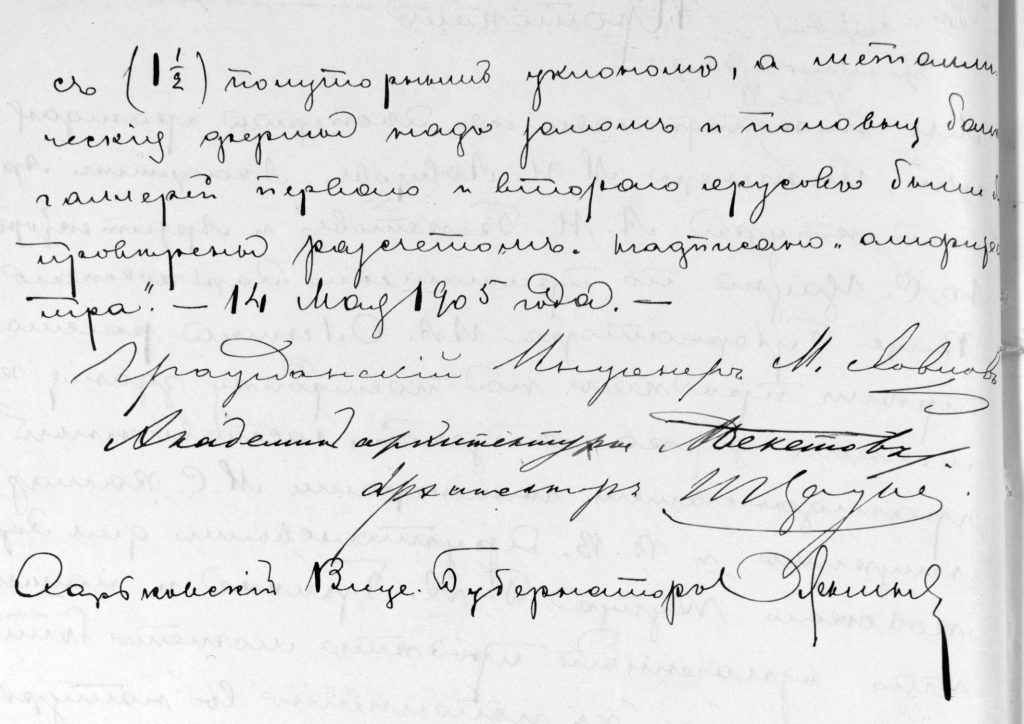 съ (1½) полуторнымъ уклономъ, а металли
ческія фермы надъ заломъ и половыя балки
галлерей перваго и втораго ярусовъ были
провѣрены расчетомъ. Надписано „амфите
тра“. — 14 Мая 1905 года. —
Гражданскій Инженеръ М. Ловцовъ
Академикъ архитектуры Бекетовъ.
Архитекторъ Цауне.
Харьковскій Вице-Губернаторъ